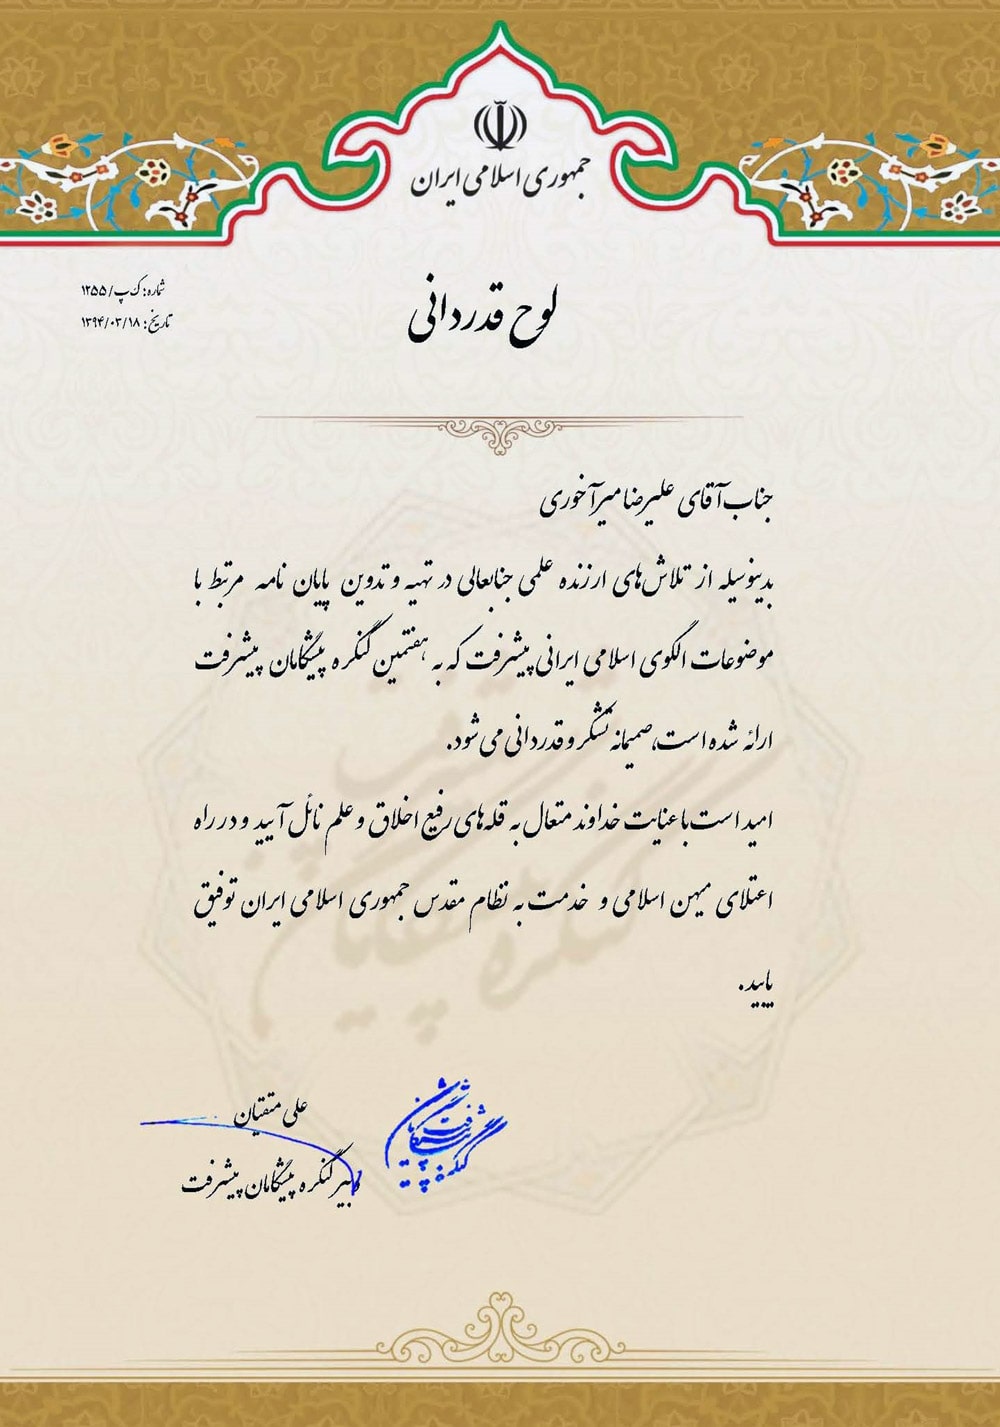 جمهوری اسلامی ایران
شماره: ک‌پ/۱۲۵۵
تاریخ: ۱۳۹۴/۰۳/۱۸
لوح قدردانی
جناب آقای علیرضا میرآخوری
بدینوسیله از تلاش‌های ارزنده علمی جنابعالی در تهیه و تدوین پایان نامه مرتبط با
موضوعات الگوی اسلامی ایرانی پیشرفت که به هفتمین کنگره پیشگامان پیشرفت
ارائه شده است، صمیمانه تشکر و قدردانی می‌شود.
امید است با عنایت خداوند متعال به قله‌های رفیع اخلاق و علم نائل آیید و در راه
اعتلای میهن اسلامی و خدمت به نظام مقدس جمهوری اسلامی ایران توفیق
یابید.
علی متقیان
دبیر کنگره پیشگامان پیشرفت
کنگره پیشگامان پیشرفت